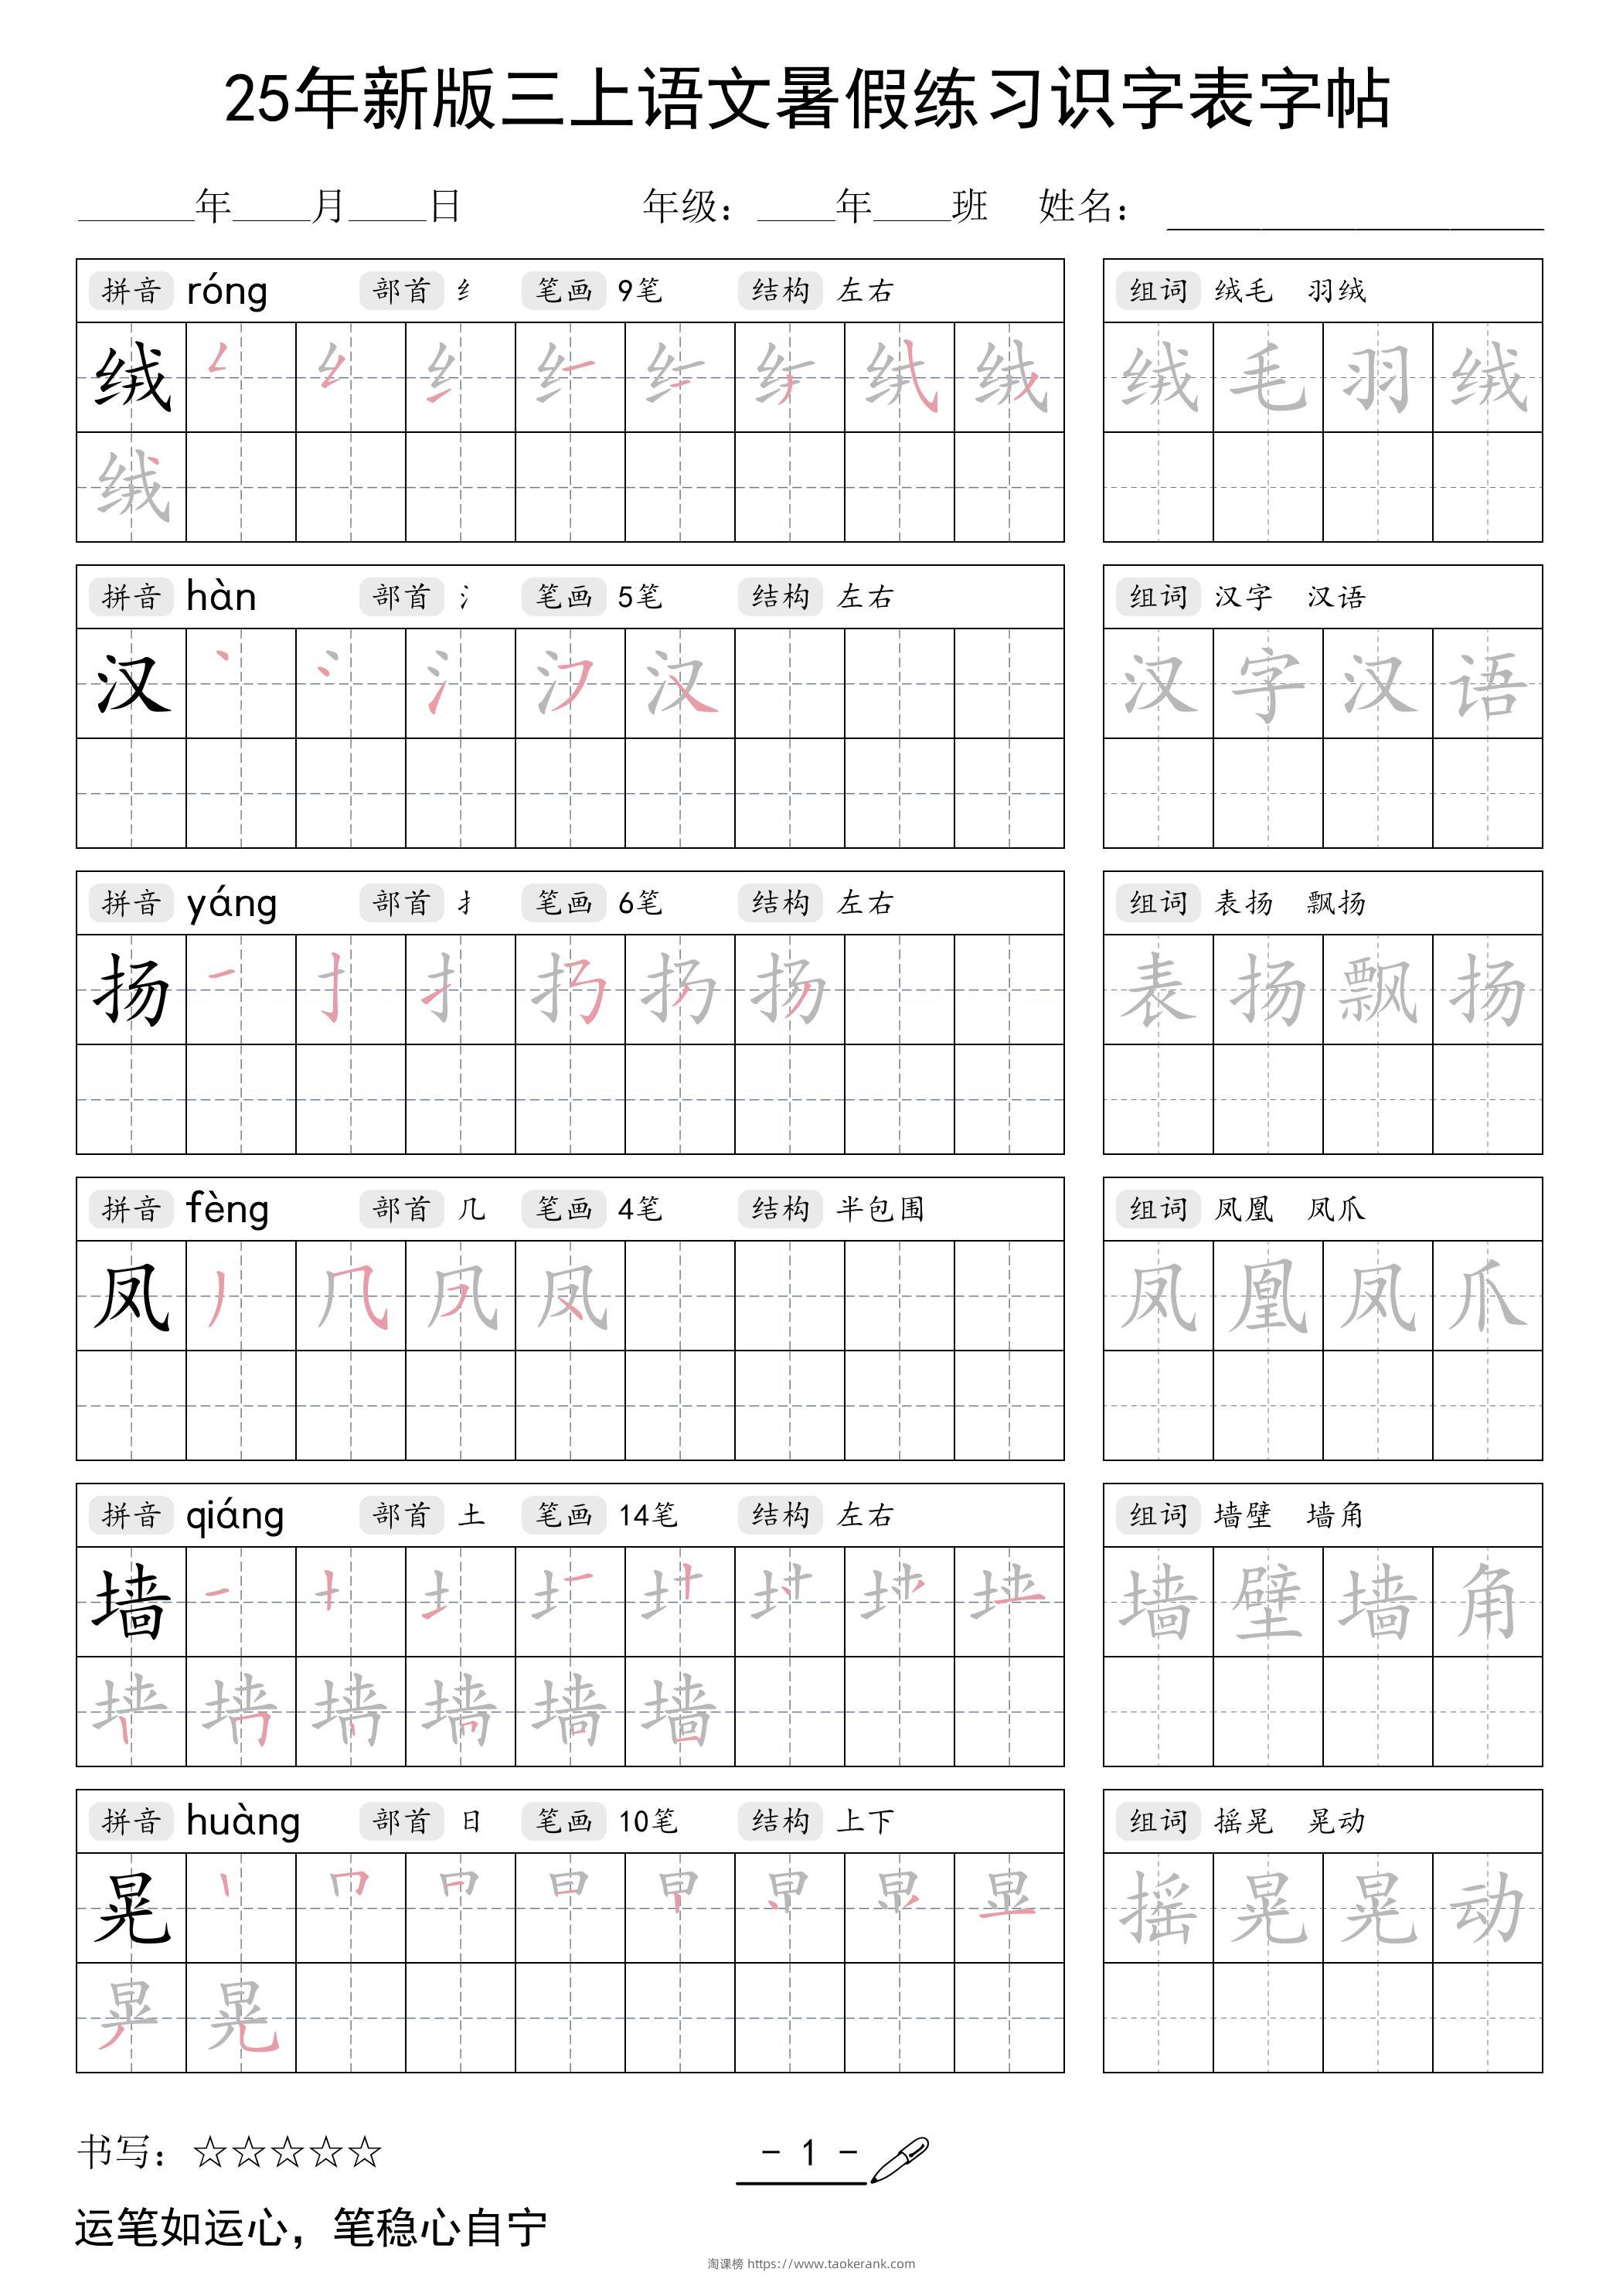 25年新版三上语文暑假练习识字表字帖
______年____月____日 年级：____年____班 姓名：
拼音 róng 部首 纟 笔画 9笔 结构 左右 组词 绒毛 羽绒
绒 绒 毛 羽 绒
绒
拼音 hàn 部首 氵 笔画 5笔 结构 左右 组词 汉字 汉语
汉 汉 字 汉 语
拼音 yáng 部首 扌 笔画 6笔 结构 左右 组词 表扬 飘扬
扬 表 扬 飘 扬
拼音 fèng 部首 几 笔画 4笔 结构 半包围 组词 凤凰 凤爪
凤 凤 凰 凤 爪
拼音 qiáng 部首 土 笔画 14笔 结构 左右 组词 墙壁 墙角
墙 墙 壁 墙 角
墙
拼音 huàng 部首 日 笔画 10笔 结构 上下 组词 摇晃 晃动
晃 摇 晃 晃 动
晃
书写：☆☆☆☆☆ - 1 -
运笔如运心，笔稳心自宁
淘课榜 https://www.taokerank.com